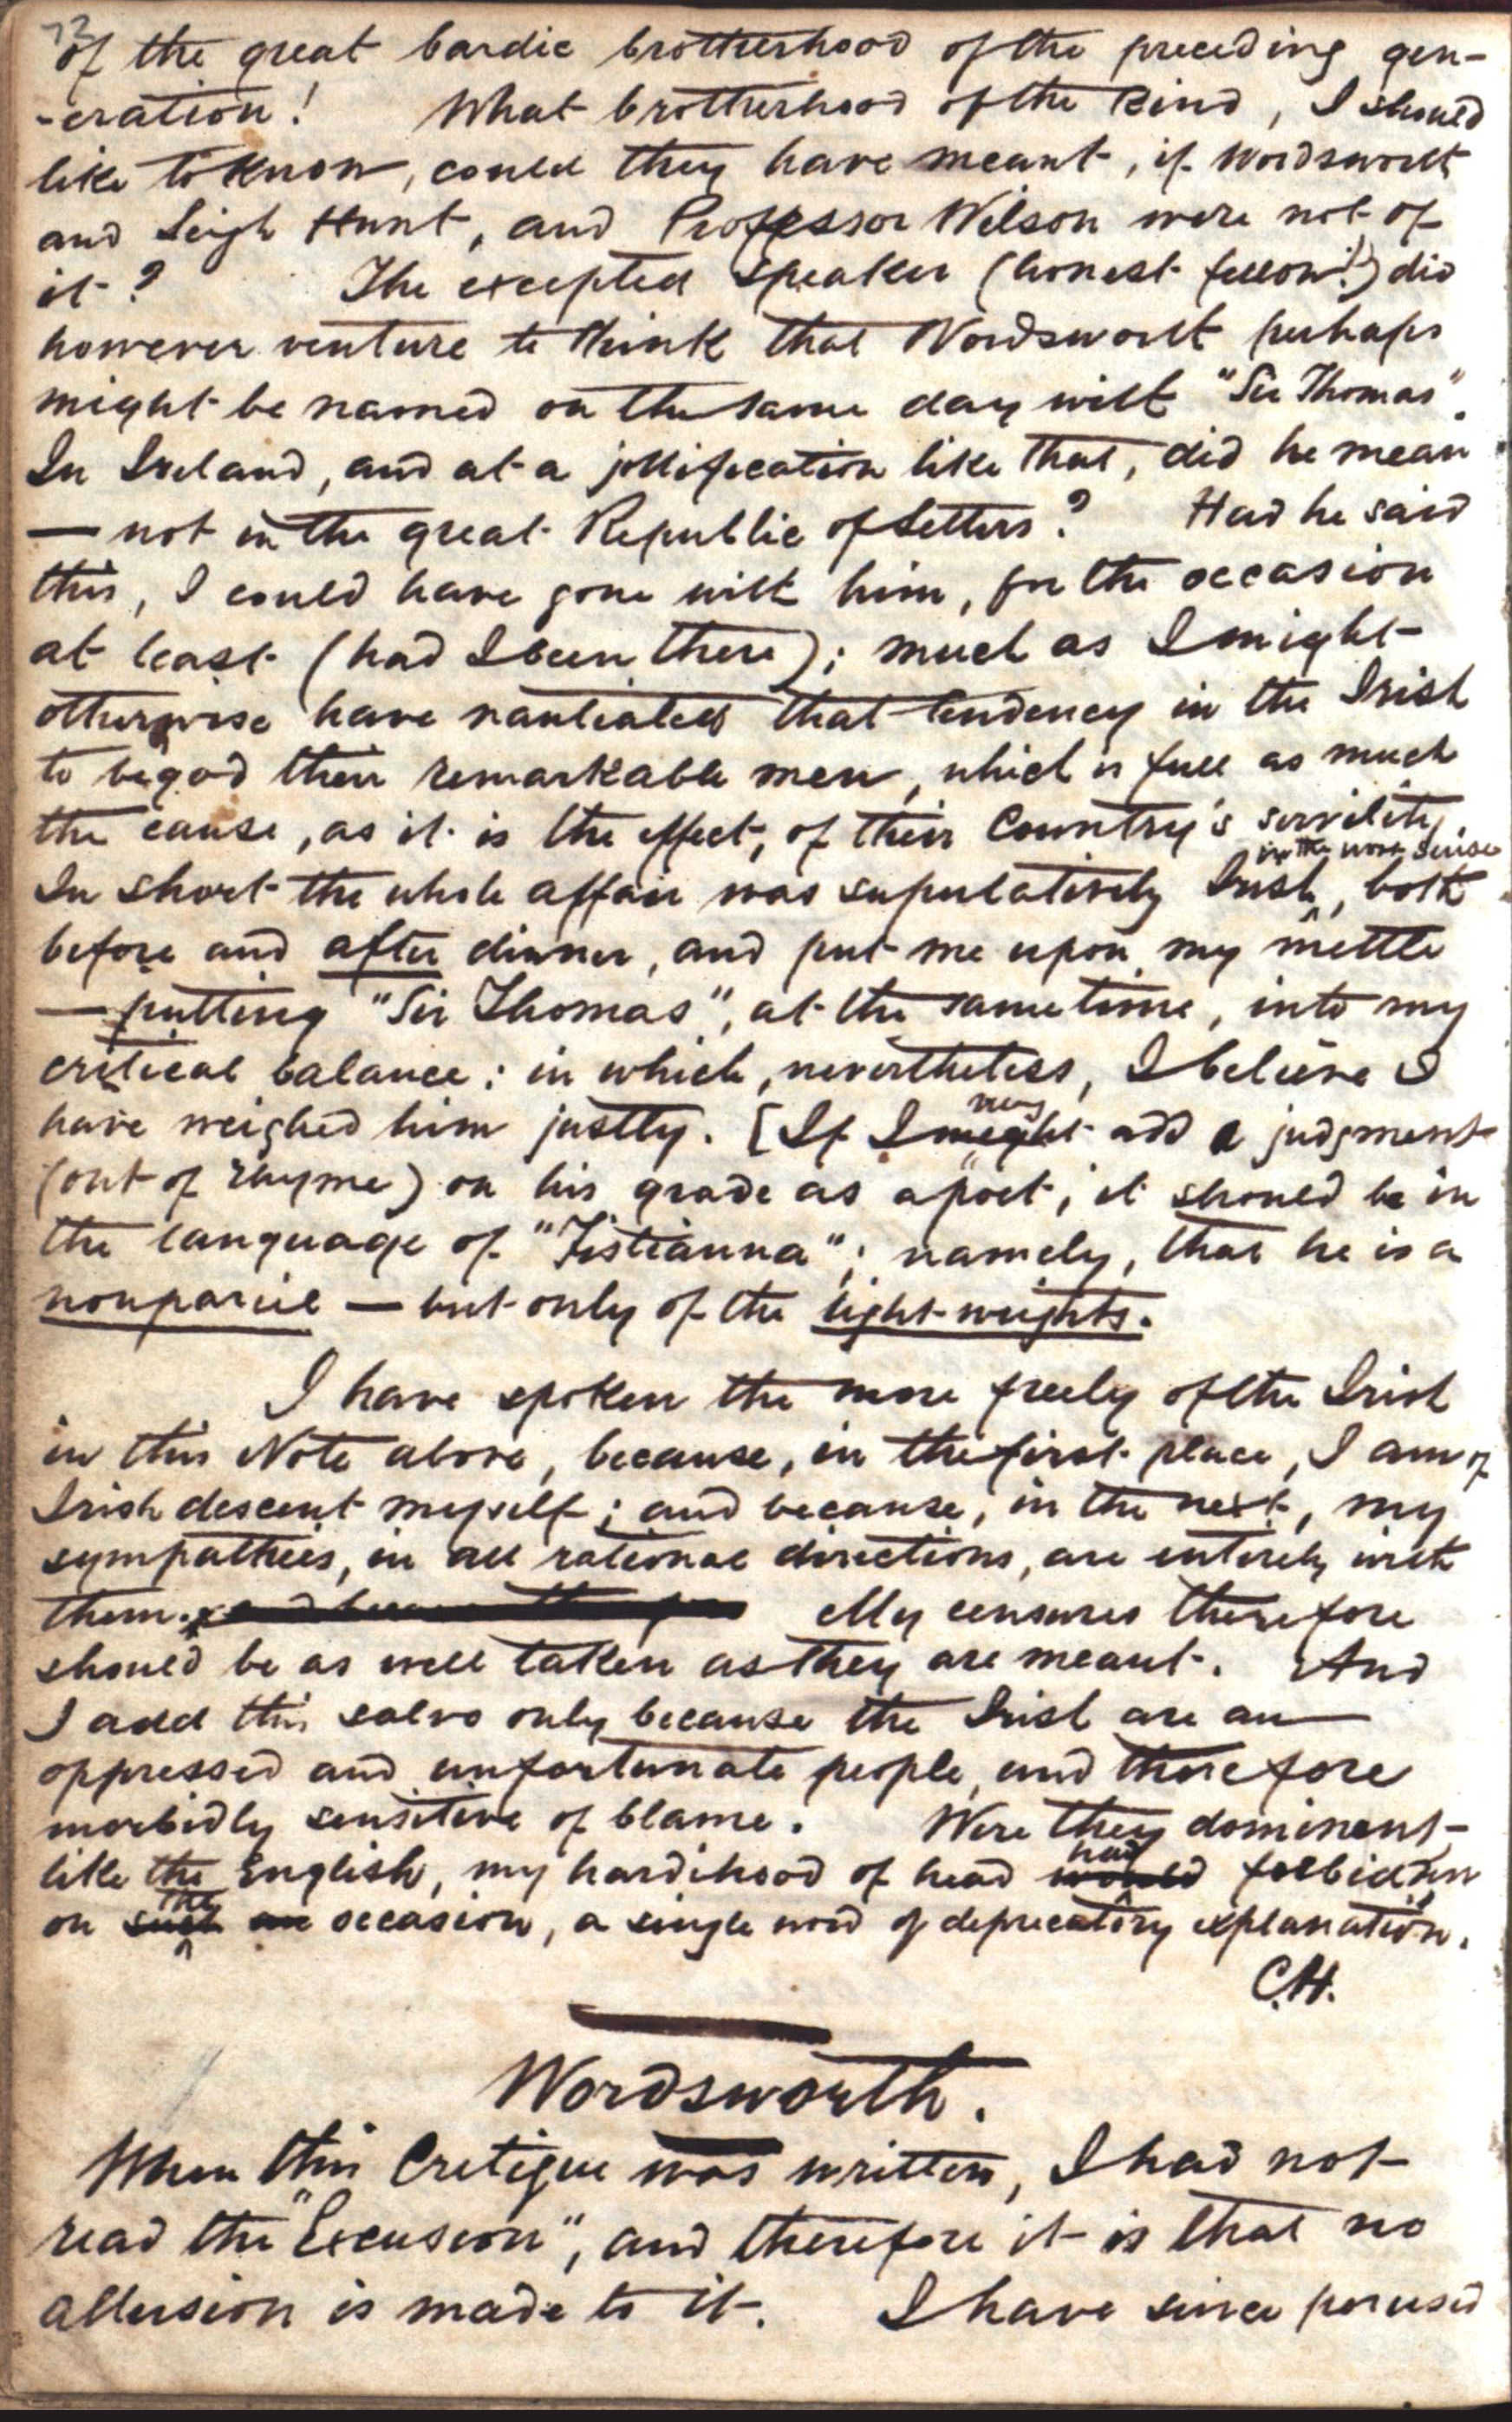 73
of the great bardic brotherhood of the preceding gen-
-eration! What brotherhood of the kind, I should
like to know, could they have meant, if Wordsworth
and Leigh Hunt, and Professor Wilson were not of
it? The excepted speaker (honest fellow!) did
however venture to think that Wordsworth perhaps
might be named on the same day with "Sir Thomas".
In Ireland, and at a jollification like that, did he mean
— not in the great Republic of Letters? Had he said
this, I could have gone with him, for the occasion
at least (had I been there); much as I might
otherwise have nauseated that tendency in the Irish
to begod their remarkable men, which is full as much
the cause, as it is the effect, of their Country's servility.
in the worse sense
In short the whole affair was superlatively Irish, both
before and after dinner, and put me upon my mettle
— putting "Sir Thomas", at the same time, into my
critical balance: in which, nevertheless, I believe I
have weighed him justly. [If I may might add a judgment
(out of rhyme) on his grade as a poet, it should be in
the language of "Fistianna"; namely, that he is a
nonpariel — but only of the light-weights.
I have spoken the more freely of the Irish
in this Note above, because, in the first place, I am of
Irish descent myself; and because, in the next, my
sympathies, in all rational directions, are entirely with
them. My censures therefore
should be as well taken as they are meant. And
I add this salvo only because the Irish are an
oppressed and unfortunate people, and therefore
morbidly sensitive of blame. Were they dominant
like the English, my hardihood of head had would forbidden
on the such an occasion, a single word of deprecatory explanation.
C.H.
Wordsworth.
When this Critique was written, I had not
read the "Excusion", and therefore it is that no
allusion is made to it. I have since perused